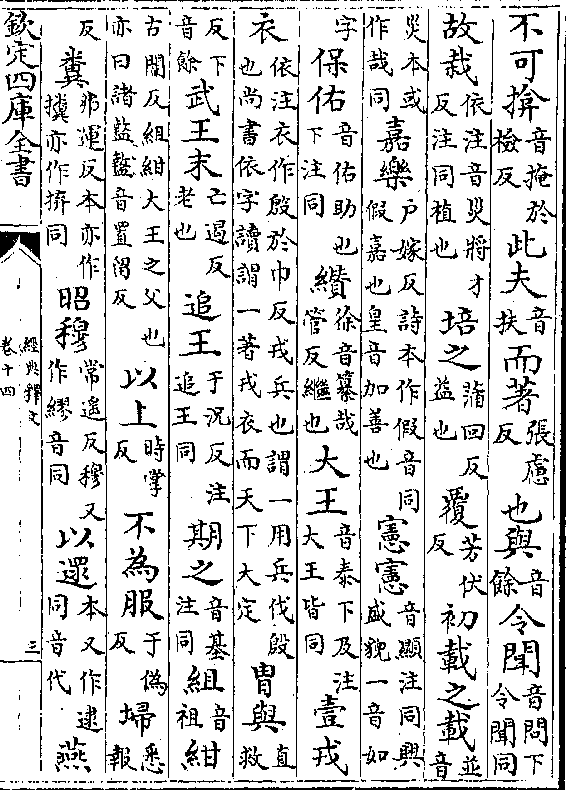 不可揜音掩於檢反此夫音扶而著張慮反也與音餘令聞音問下令聞同
故栽依注音災將才反注同植也培之蒲回反益也覆芳伏反初載之載並音
災本或作哉同嘉樂戶嫁反詩本作假音同假嘉也皇音加善也憲憲音顯注同興盛貌一音如
字保佑音佑助也下注同纘徐音纂哉管反繼也大王音泰下及注大王皆同壹戎
衣依注衣作殷於巾反戎兵也謂一用兵伐殷也尚書依字讀謂一著戎衣而天下大定冑與直救
反下音餘武王末亡遏反老也追王于況反注追王同期之音基注同組音祖紺
古闇反組紺大王之父也亦曰諸盩盩音置留反以上時掌反不為服于偽反埽悉報
反糞弗運反本亦作㩥亦作拚同昭穆常遙反穆又作繆音同以遝本又作逮同音代燕
欽定四庫全書
經典釋文
卷十四
三